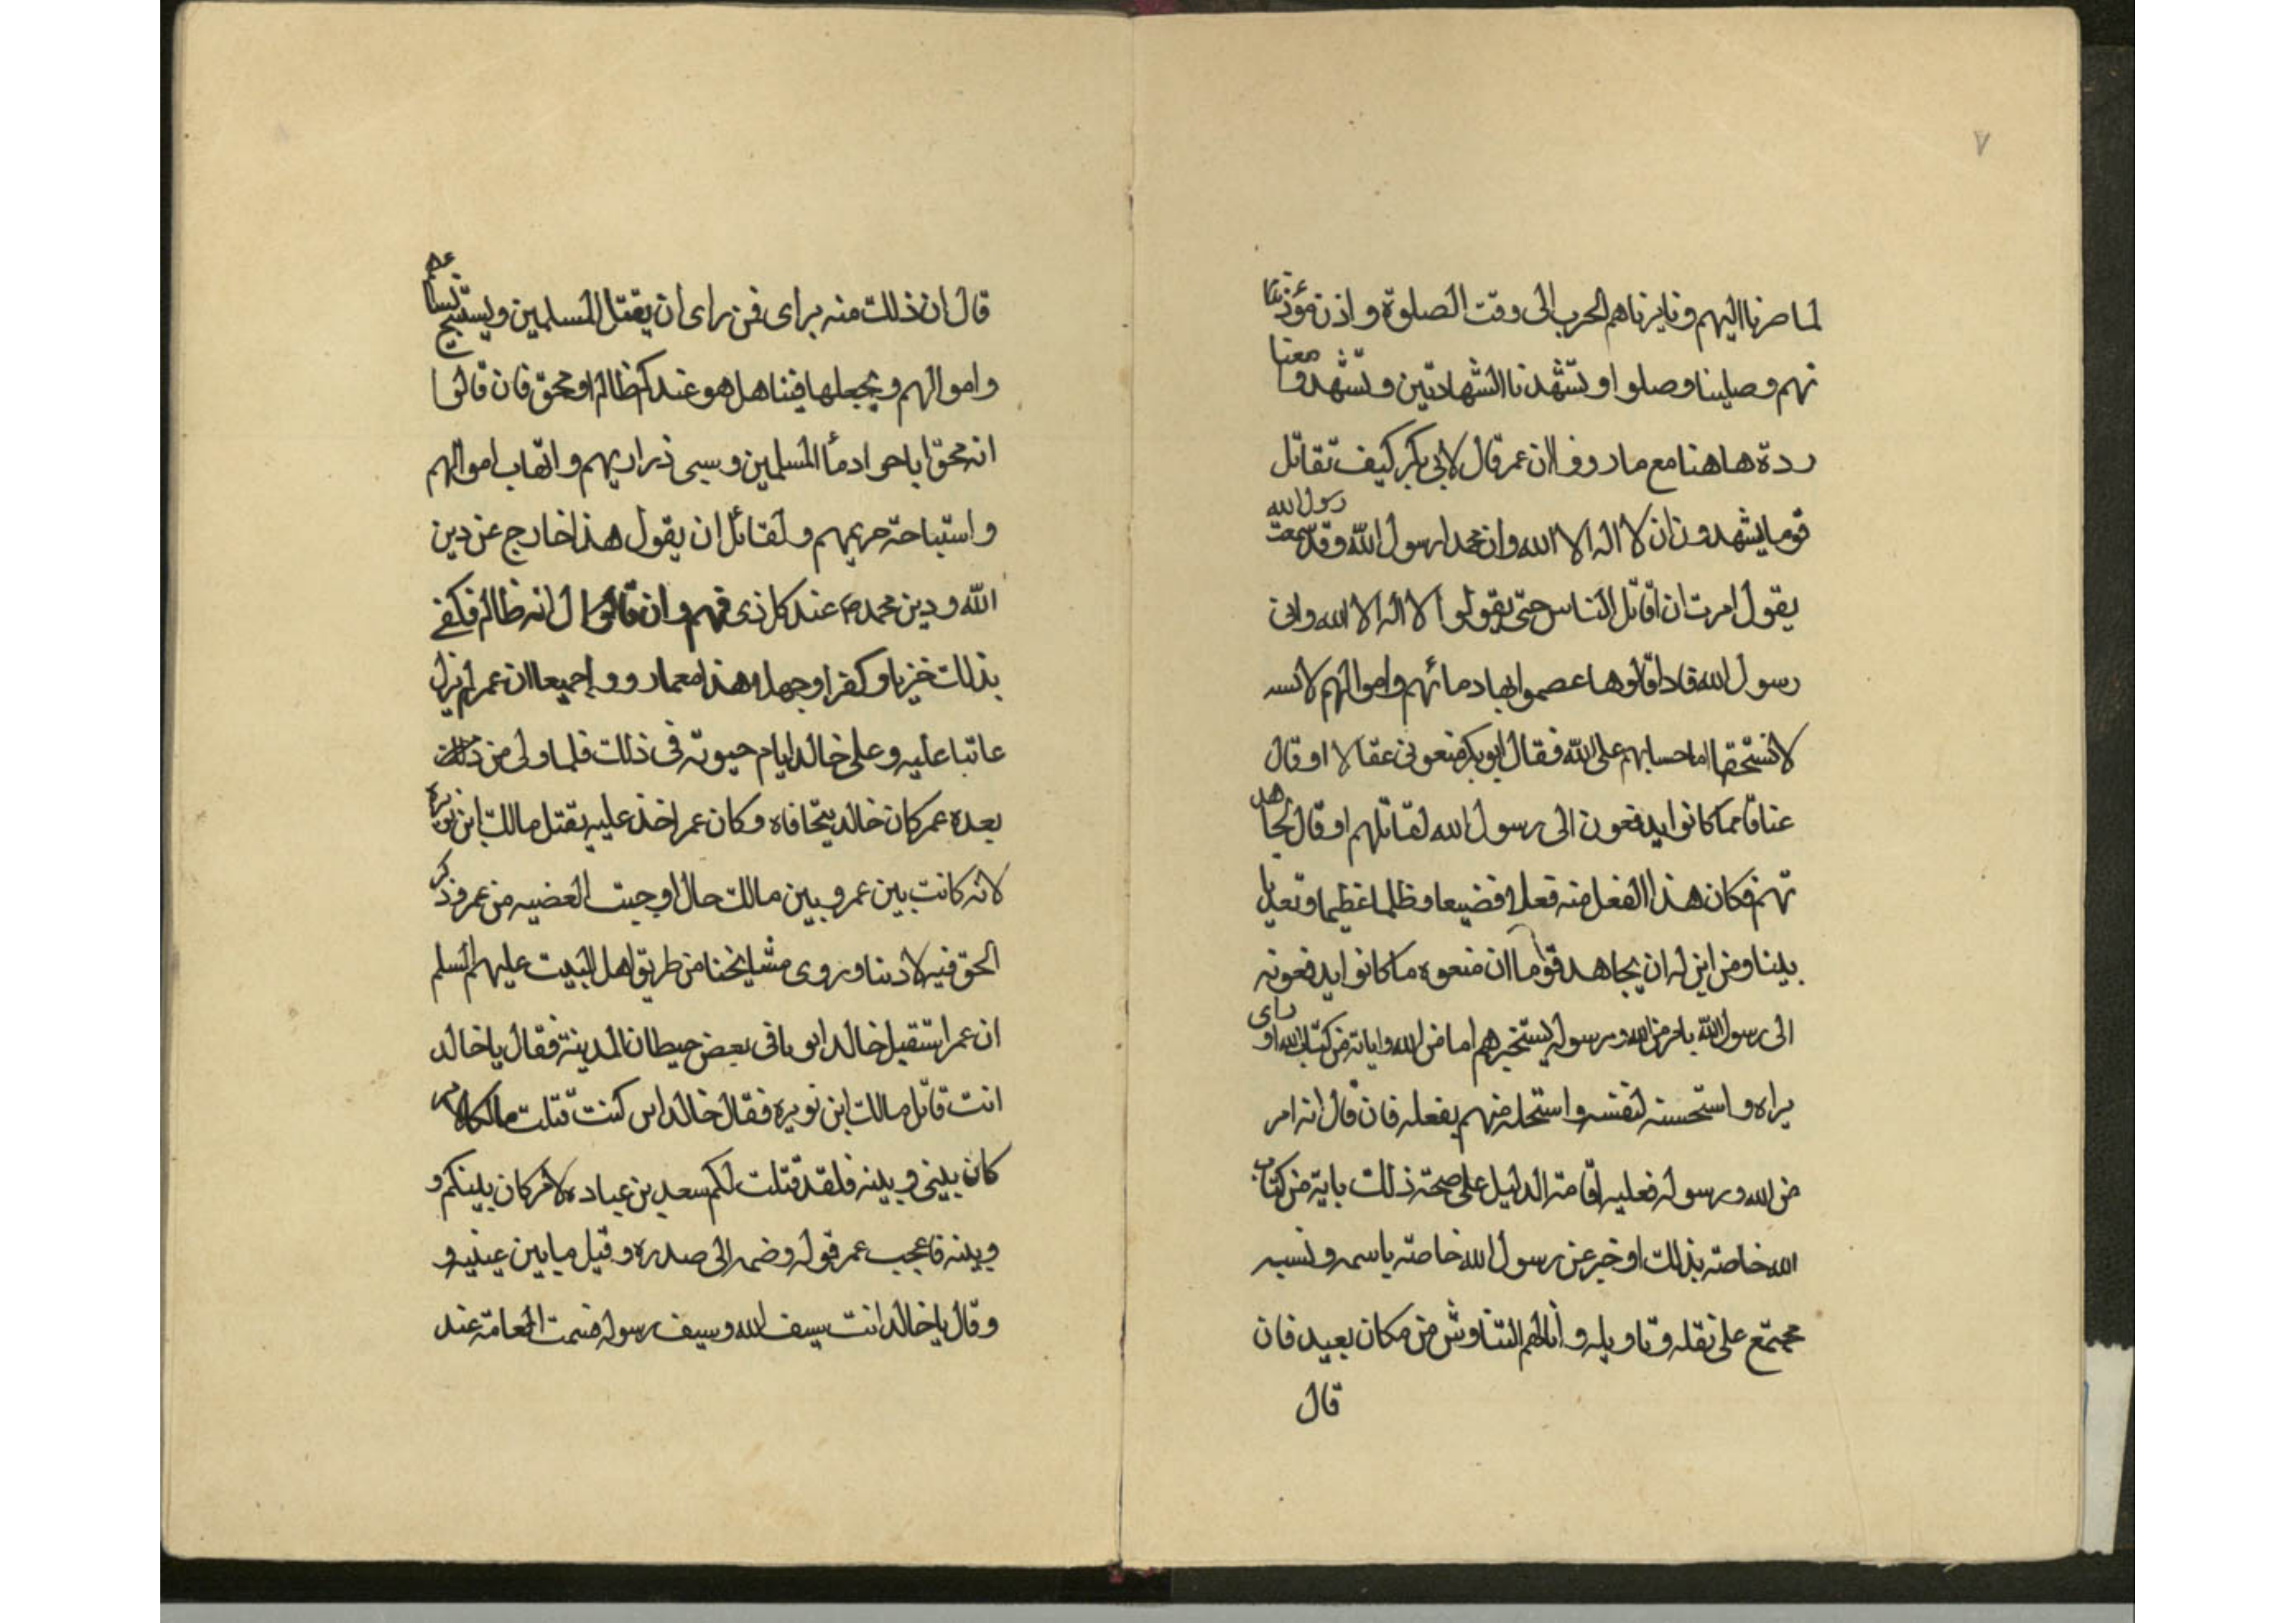 ٧
لما صرنا اليهم ونابزناهم الحرب الى وقت الصلوة واذن مؤذننا
نهم وصلينا وصلوا وتشهدنا الشهادتين وتشهدوا معنا
ردة هاهنا مع ما رووا ان عمر قال لابي بكر كيف تقاتل
قوما يشهدون ان لا اله الا الله وان محمدا رسول الله وقد سمعت رسول الله
يقول امرت ان اقاتل الناس حتى يقولوا لا اله الا الله واني
رسول الله فاذا قالوها عصموا بها دمائهم واموالهم
لا تستحقها اما حسابهم على الله فقال ابوبكر منعوني عقالا او قال
عناقا مما كانوا يدفعون الى رسول الله لقاتلهم او قال لجاهد
تهم فكان هذا الفعل منه فعلا فضيعا وظلما عظيما وتعديا
بينا ومن اين له ان يجاهد قوما ان منعوه ما كانوا يدفعونه
الى رسول الله بامر من الله ورسوله اما من الله واياته من كتاب الله او راى
يراه واستحسنه لنفسه واستحله منهم بفعله فان قال انه امر
من الله ورسوله فعليه اقامة الدليل على صحة ذلك باية من كتاب
الله خاصة بذلك او خبر عن رسول الله خاصة باسمه ونسبه
مجتمع على نقله وتاويله وانالهم التناوش من مكان بعيد فان
قال
قال ان ذلك منه براى فمن راى ان يقتل المسلمين ويستبيح
واموالهم ويجعلها فينا هل هو عندكم ظالم او محق فان قالوا
انه محق اباحوا دمأ المسلمين وسبى ذراريهم وانهاب اموالهم
واستباحة حريمهم ولقائل ان يقول هذا خارج عن دين
الله ودين محمد ص عند كل ذى فهم وان قالوا انه ظالم فكفى
بذلك خزيا وكفرا وجهلا هذا مع ما رووا جميعا ان عمر لم يزل
عاتبا عليه وعلى خالد ايام حيوته فى ذلك فلما ولى من
بعده عمر كان خالد يتخافاه وكان عمر اخذ عليه بقتل مالك ابن نويره
لانه كانت بين عمر وبين مالك حال اوجبت العضبيه من عمر وذكر
الحق فيه لا دينا وروى مشايخنا من طريق اهل البيت عليهم السلم
ان عمر استقبل خالد يوما فى بعض حيطان المدينة فقال يا خالد
انت قاتل مالك ابن نويره فقال خالد ان كنت قتلت مالكا لامر
كان بينى وبينه فلقد قتلت لكم سعد بن عباده لامر كان بينكم و
وبينه فاعجب عمر قوله وضمه الى صدره وقبل ما بين عينيه و
وقال يا خالد انت سيف الله وسيف رسوله فسمت العامة عند